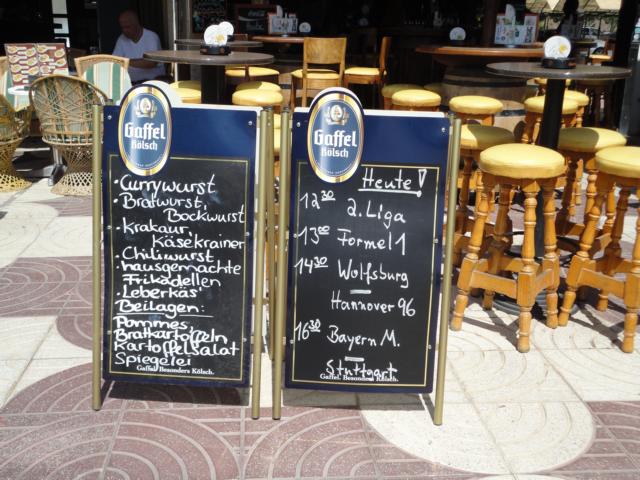 Gaffel
Kölsch
• Currywurst
• Bratwurst,
Bockwurst
• Krakaur,
Käsekrainer
• Chiliwurst
• hausgemachte
Frikadellen
• Leberkäs'
Beilagen:
Pommes,
Bratkartoffeln
Kartoffelsalat
Spiegelei
Gaffel. Besonders Kölsch.
Gaffel
Kölsch
Heute!
12 30 2. Liga
13 00 Formel 1
14 30 Wolfsburg
—
Hannover 96
16 30 Bayern M.
—
Stuttgart
Gaffel. Besonders Kölsch.